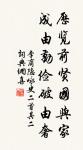 歷覽前賢國與家
成由勤儉破由奢
李商隱詠史二首其二
詞典網書